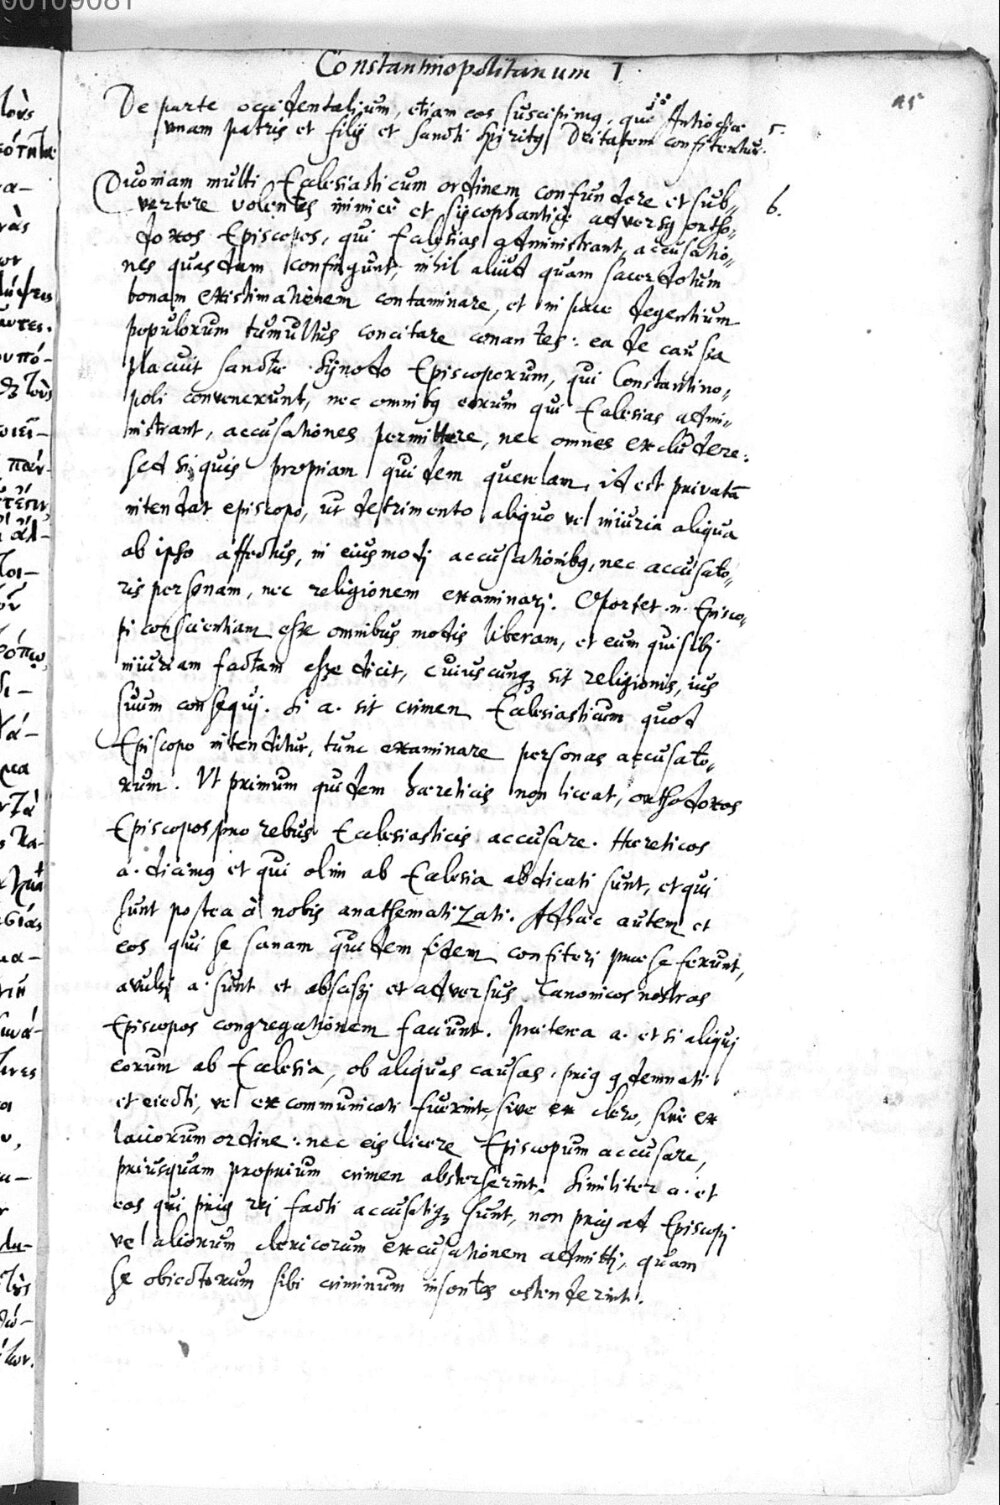 00109081
Constantinopolitanum I.
15
De parte occidentalium, etiam eos suscipimus, qui Antiochiae 5.
unam patris et filij et sancti spiritus Deitatem confitentur.
Quoniam multi Ecclesiasticum ordinem confundere et sub- 6.
vertere volentes inimicè et sycophanticè adversus ortho-
doxos Episcopos, qui Ecclesias administrant, accusatio-
nes quasdam confingunt, nihil aliud quam sacerdotum
bonam existimationem contaminare, et in pace degentium
populorum tumultus concitare conantes: ea de causa
placuit sanctae Synodo Episcoporum, qui Constantino-
poli convenerunt, nec omnibus eorum qui Ecclesias admi-
nistrant, accusationes permittere, nec omnes excludere:
sed si quis propriam quidem querelam, id est privatã
intendat episcopo, ut detrimento aliquo vel iniuria aliqua
ab ipso affectus, in eiusmodj accusationibus, nec accusato-
ris personam, nec religionem examinarj. Oportet .n. Episco-
pi conscientiam esse omnibus modis liberam, et eum qui sibj
iniuriam factam esse dicit, cuiuscunque sit religionis, ius
suum consequj. Si a. sit crimen Ecclesiasticum quod
Episcopo intenditur, tunc examinare personas accusato-
rum. Ut primum quidem haereticis non liceat, orthodoxos
Episcopos pro rebus Ecclesiasticis accusare. Haereticos
a. dicimus et qui olim ab Ecclesia abdicati sunt, et qui
sunt postea à nobis anathematizati. Ad haec autem et
eos qui se sanam quidem fidem confiterj prae se ferunt,
avulsi a. sunt et abscissi et adversus Canonicos nostros
Episcopos congregationem faciunt. Praeterea a. et si aliquj
eorum ab Ecclesia, ob aliquas causas, prius condemnati
et eiecti, vel excommunicati fuerint, sive ex clero, sive ex
laicorum ordine: nec eis licere Episcopum accusare,
priusquam proprium crimen absterserint. Similiter a. et
eos qui prius rei facti accusatique sunt, non prius ad Episcopj
vel aliorum clericorum excusationem admitti, quam
se obiectorum sibi criminum insontes ostenderint.